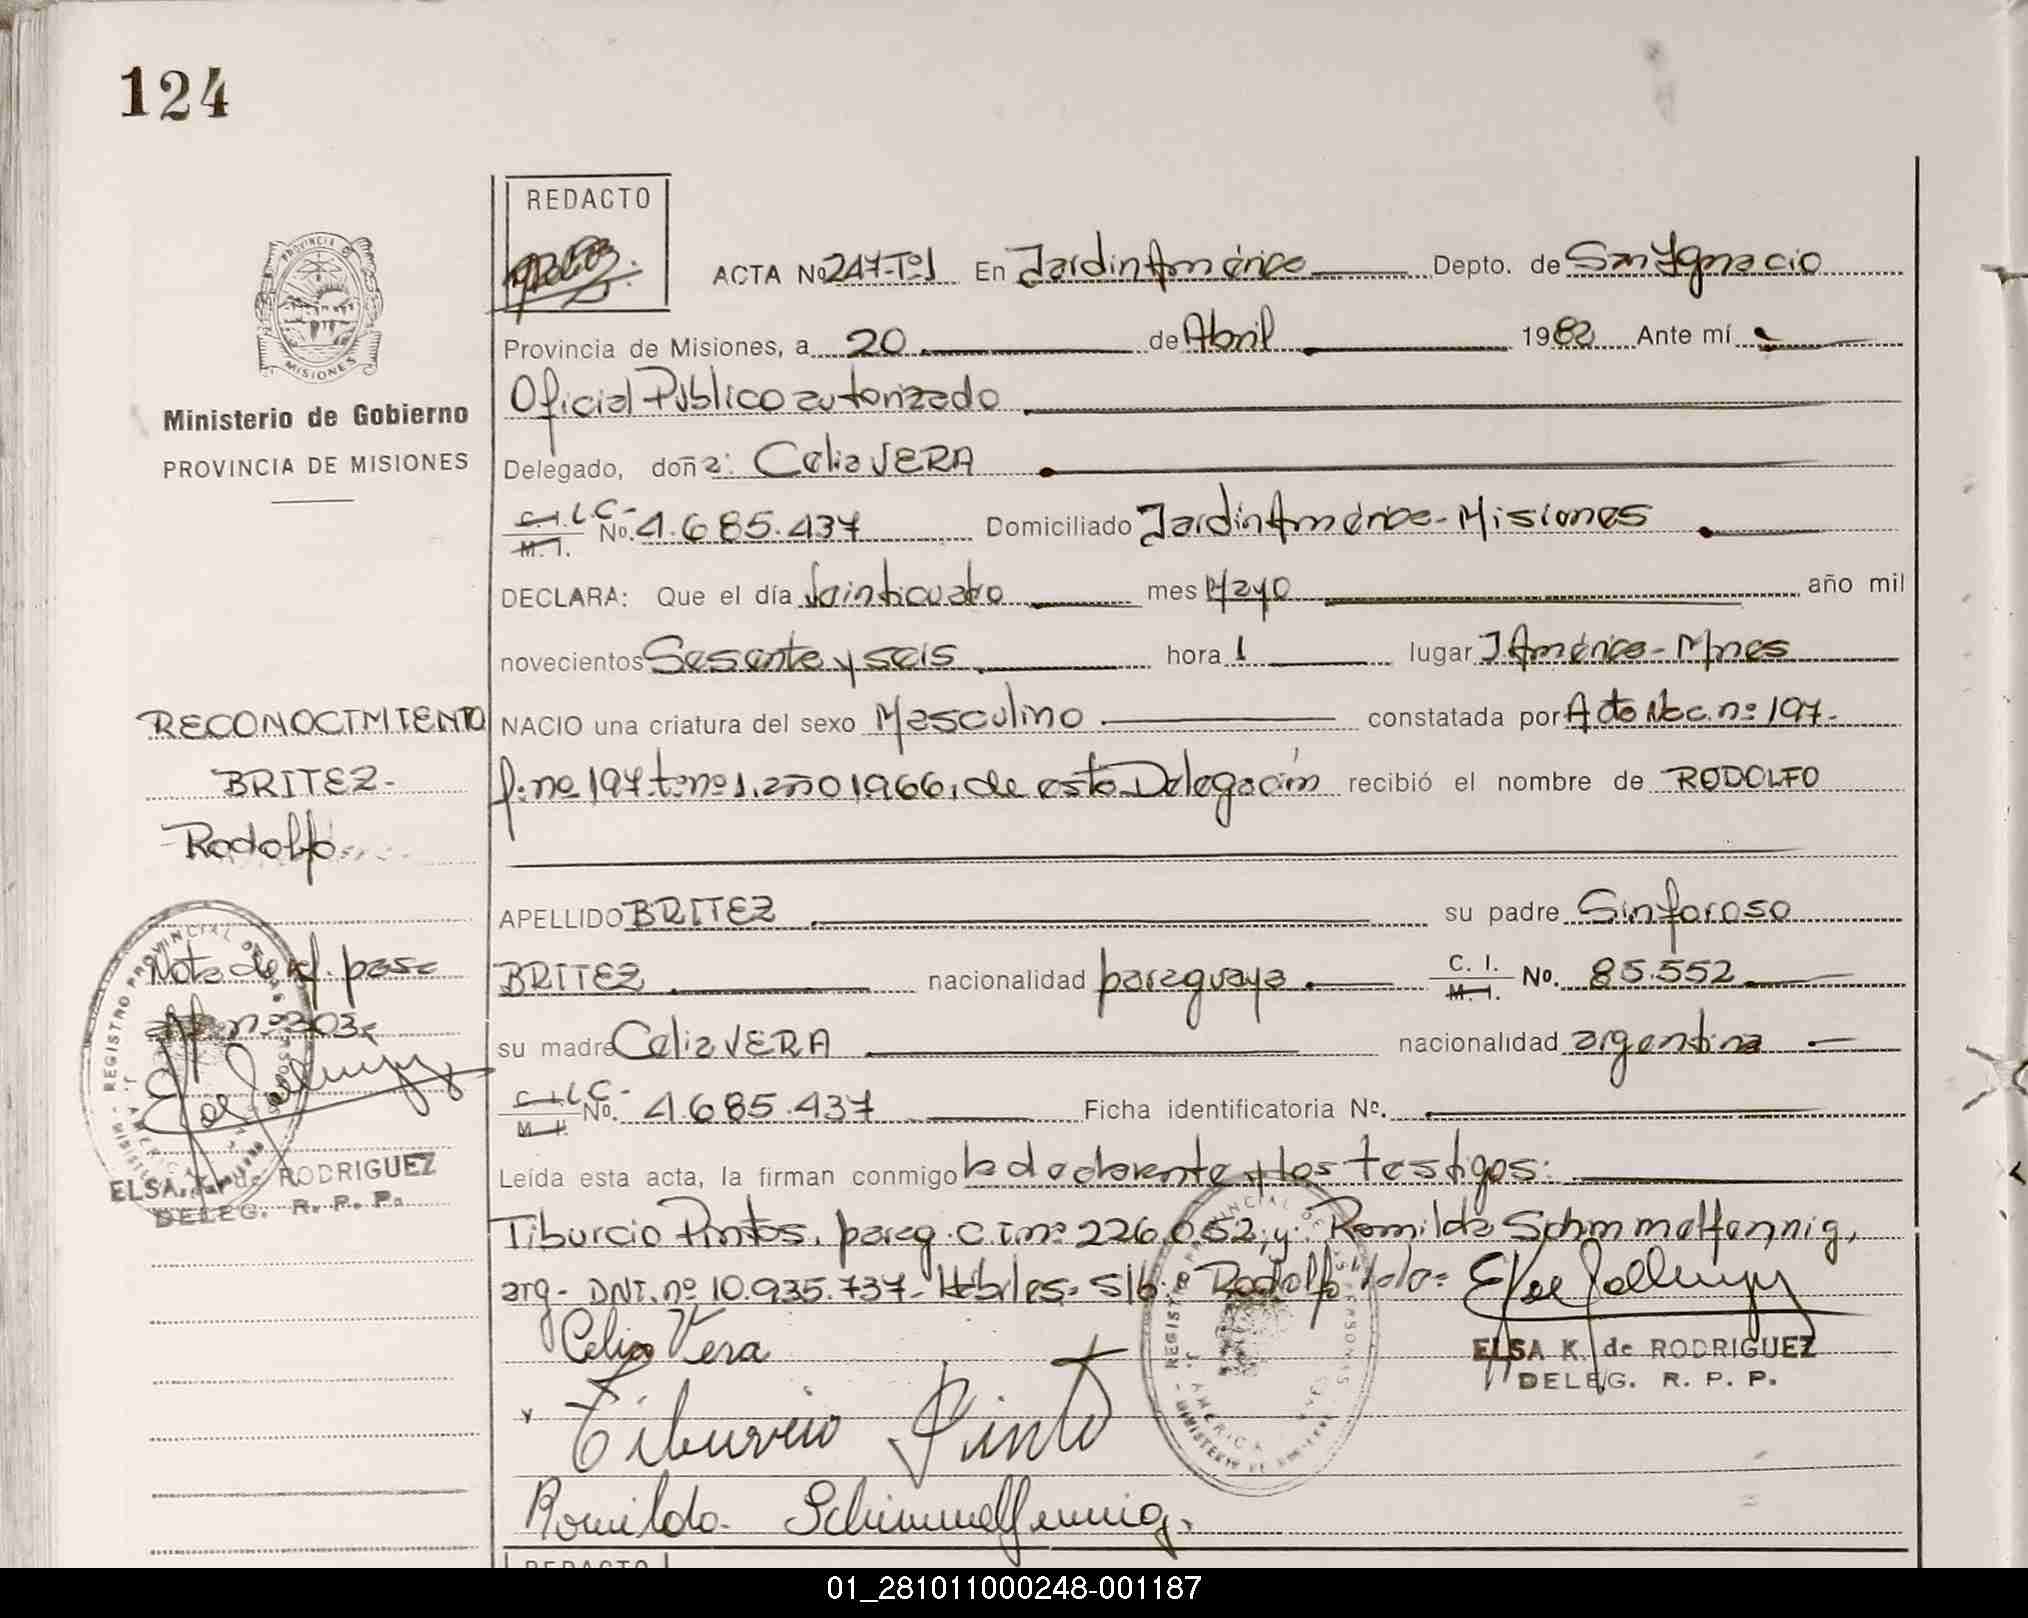 124
REDACTO
ACTA No 247-Tº1 En Jardin América Depto. de San Ignacio
Provincia de Misiones, a 20 de Abril 1982 Ante mí
Oficial Público autorizado
Ministerio de Gobierno
PROVINCIA DE MISIONES
Delegado, doña: Celia VERA
C.I. L.C- M.I. No. 4.685.437 Domiciliado Jardin América - Misiones
DECLARA: Que el día Veinticuatro mes Mayo año mil
novecientos Sesenta y seis hora 1 lugar J. América - Mnes
RECONOCIMIENTO
NACIO una criatura del sexo Masculino constatada por Acta Nac. nº 197-
BRITEZ-
f: nº 197 tº nº 1, año 1966, de esta Delegación recibió el nombre de RODOLFO
Rodolfo
APELLIDO BRITEZ su padre Sinforoso
Nota de ref. pase
BRITEZ nacionalidad paraguaya C. I. M. I. No. 85.552
nº 303
su madre Celia VERA nacionalidad argentina
C.I. L.C- M.I. No. 4.685.437 Ficha identificatoria Nº.
Leída esta acta, la firman conmigo la declarante y los testigos:
ELSA K. de RODRIGUEZ
DELEG. R. P. P.
Tiburcio Pintos, parag. C.I nº 226.052, y: Romilda Schmmelfennig,
arg- DNI. nº 10.935.737- Hábiles- S/b: Rodolfo Vale=
Celia Vera
ELSA K. de RODRIGUEZ
DELEG. R. P. P.
y Tiburcio Pinto
Romilda Schimmelfennig.
REDACTO
01_281011000248-001187